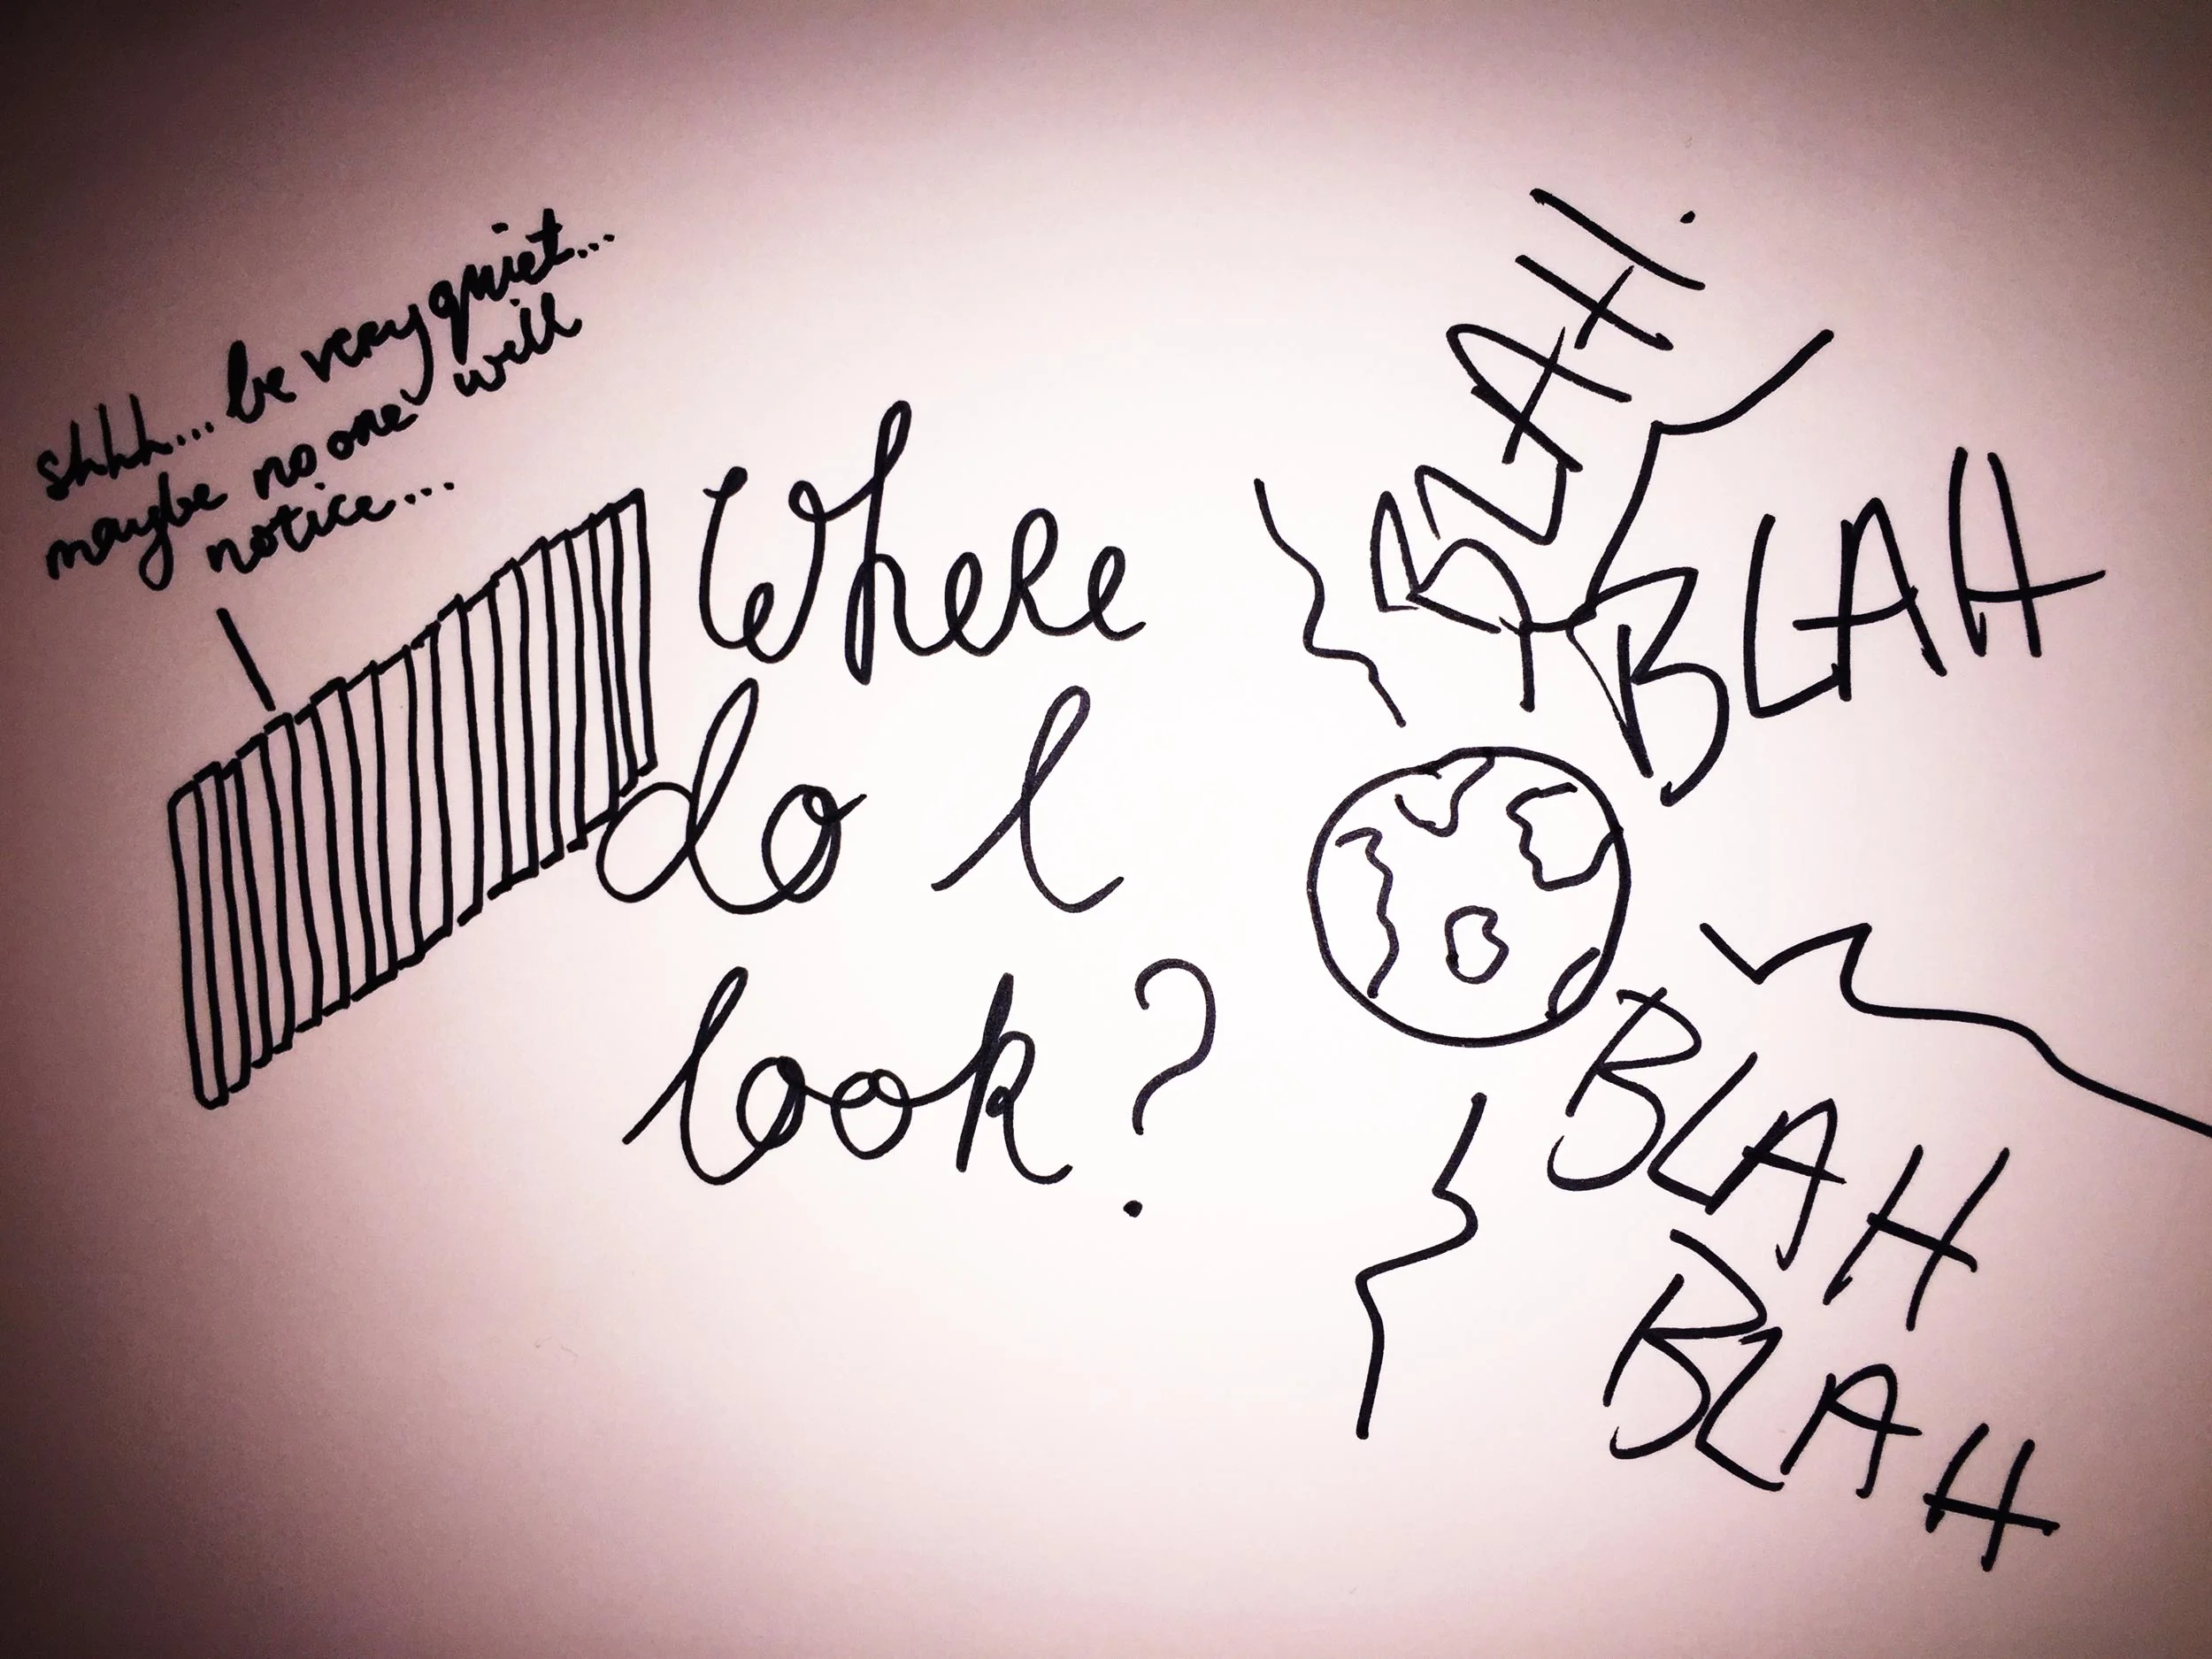 shhh... be very quiet...
maybe no one will
notice...
Where
do I
look?
BLAH.
BLAH
BLAH
BLAH